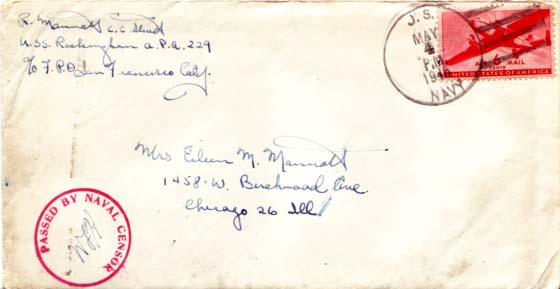 R. Mannatt
U.S.S. Rockingham A.P.A. 229
℅ F.P.O. San Francisco Calif.
U.S.
MAY
4
P.M.
NAVY
AIR MAIL
6
CENTS
UNITED STATES OF AMERICA
Mrs Eileen M. Mannatt
1458-W. Birchwood Ave.
Chicago 26 Ill
PASSED BY NAVAL CENSOR